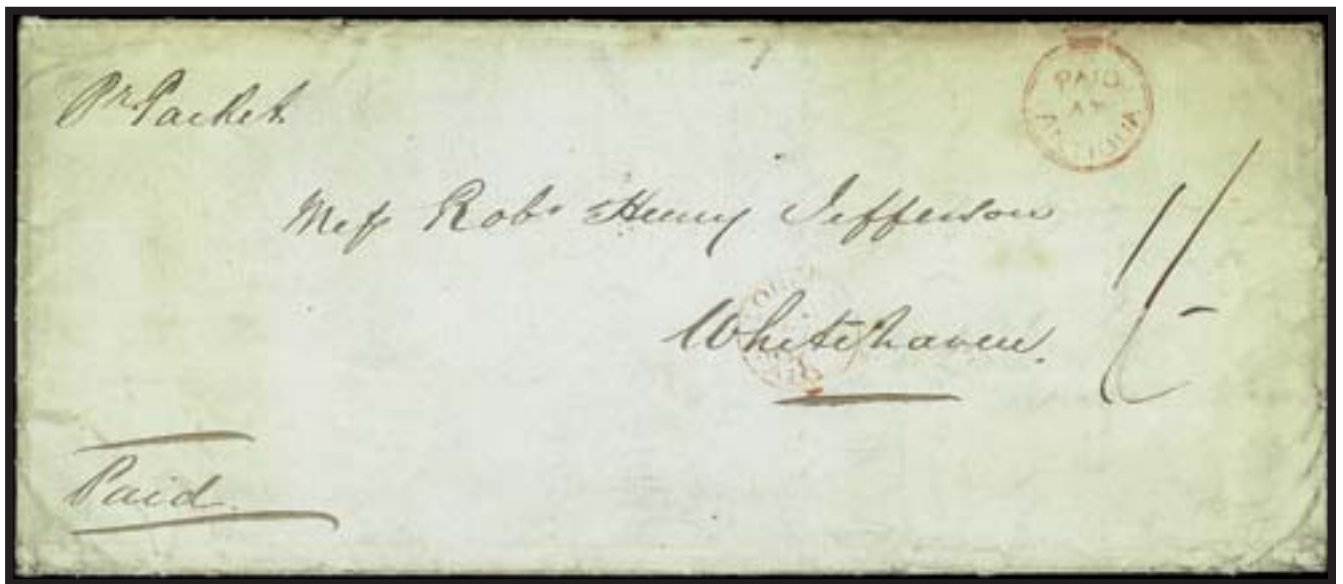 Pr. Packet
PAID
AT
ANTIGUA
Mess Robt Henry Jefferson
Whitehaven.
1/-
Paid.